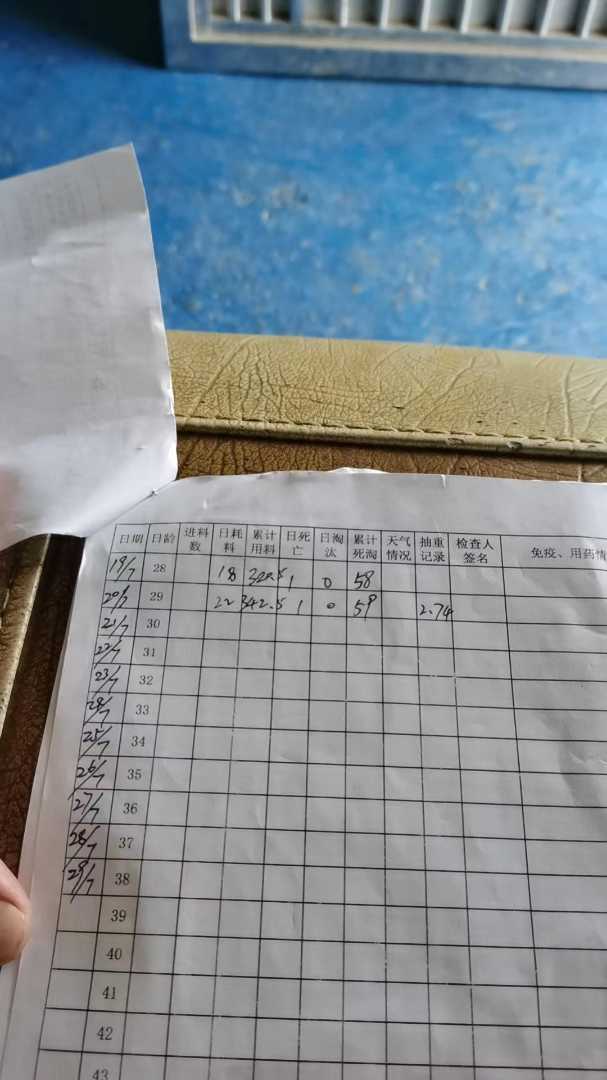 日期 日龄 进料数 日耗料 累计用料 日死亡 日淘汰 累计死淘 天气情况 抽重记录 检查人签名 免疫、用药情
19/7 28 18 320.5 1 0 58
20/7 29 22 342.5 1 0 59 2.74
21/7 30
22/7 31
23/7 32
24/7 33
25/7 34
26/7 35
27/7 36
28/7 37
29/7 38
39
40
41
42
43